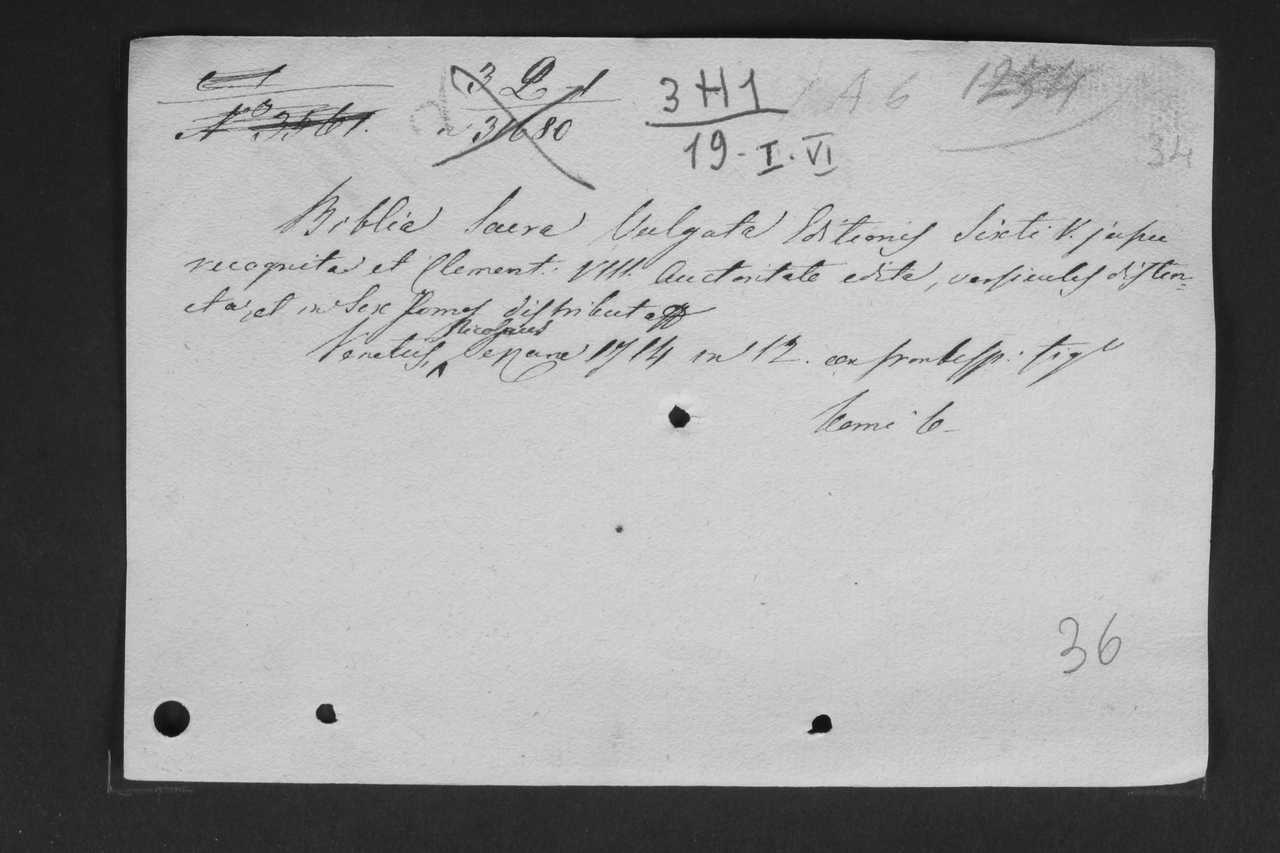 3 L 1
N° 3461.
n 3680
3 H 1
19 - I. VI
1 A 6
1254
34
Biblia Sacra Vulgata Editionis Sixti V. jussu
recognita et Clement: VIII. Auctoritate edita, versiculis distin=
cta, et in Sex Tomos distributa
Nicolaus
Venetiis, Pezzana 1714 in 12. con frontesp: fig
Tomi 6
36